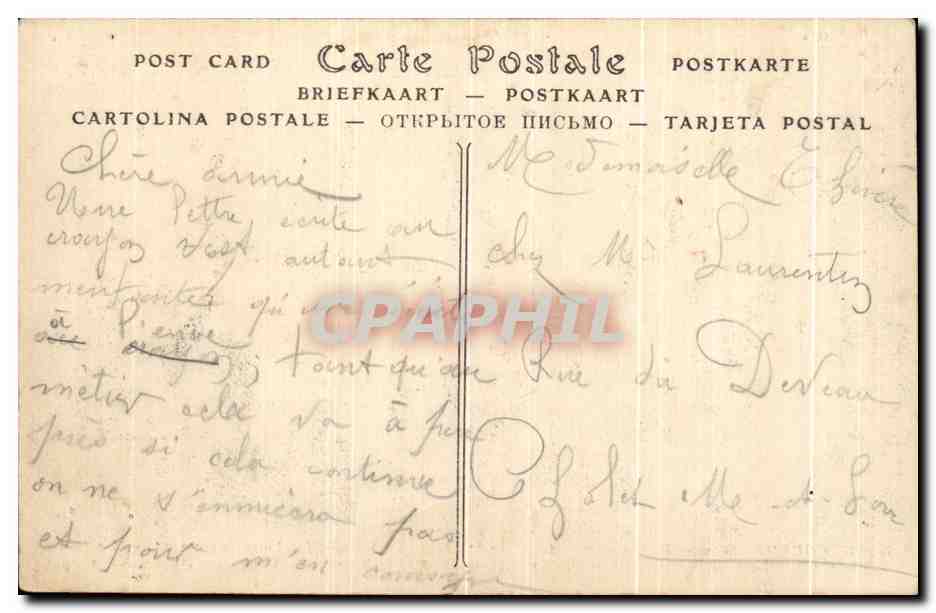 POST CARD Carte Postale POSTKARTE
BRIEFKAART — POSTKAART
CARTOLINA POSTALE — ОТКРЫТОЕ ПИСЬМО — TARJETA POSTAL
Chère Amie
Une lettre écrite au
crayon autant
qu'
à
au crayon, tant qu'au
métier cela va à peu
près si cela continue
on ne s'ennuiera pas
et pour m'en
Mademoiselle
chez Mr Laurentin
Rue du Deveau
Cholet M et Loire
CPAPHIL